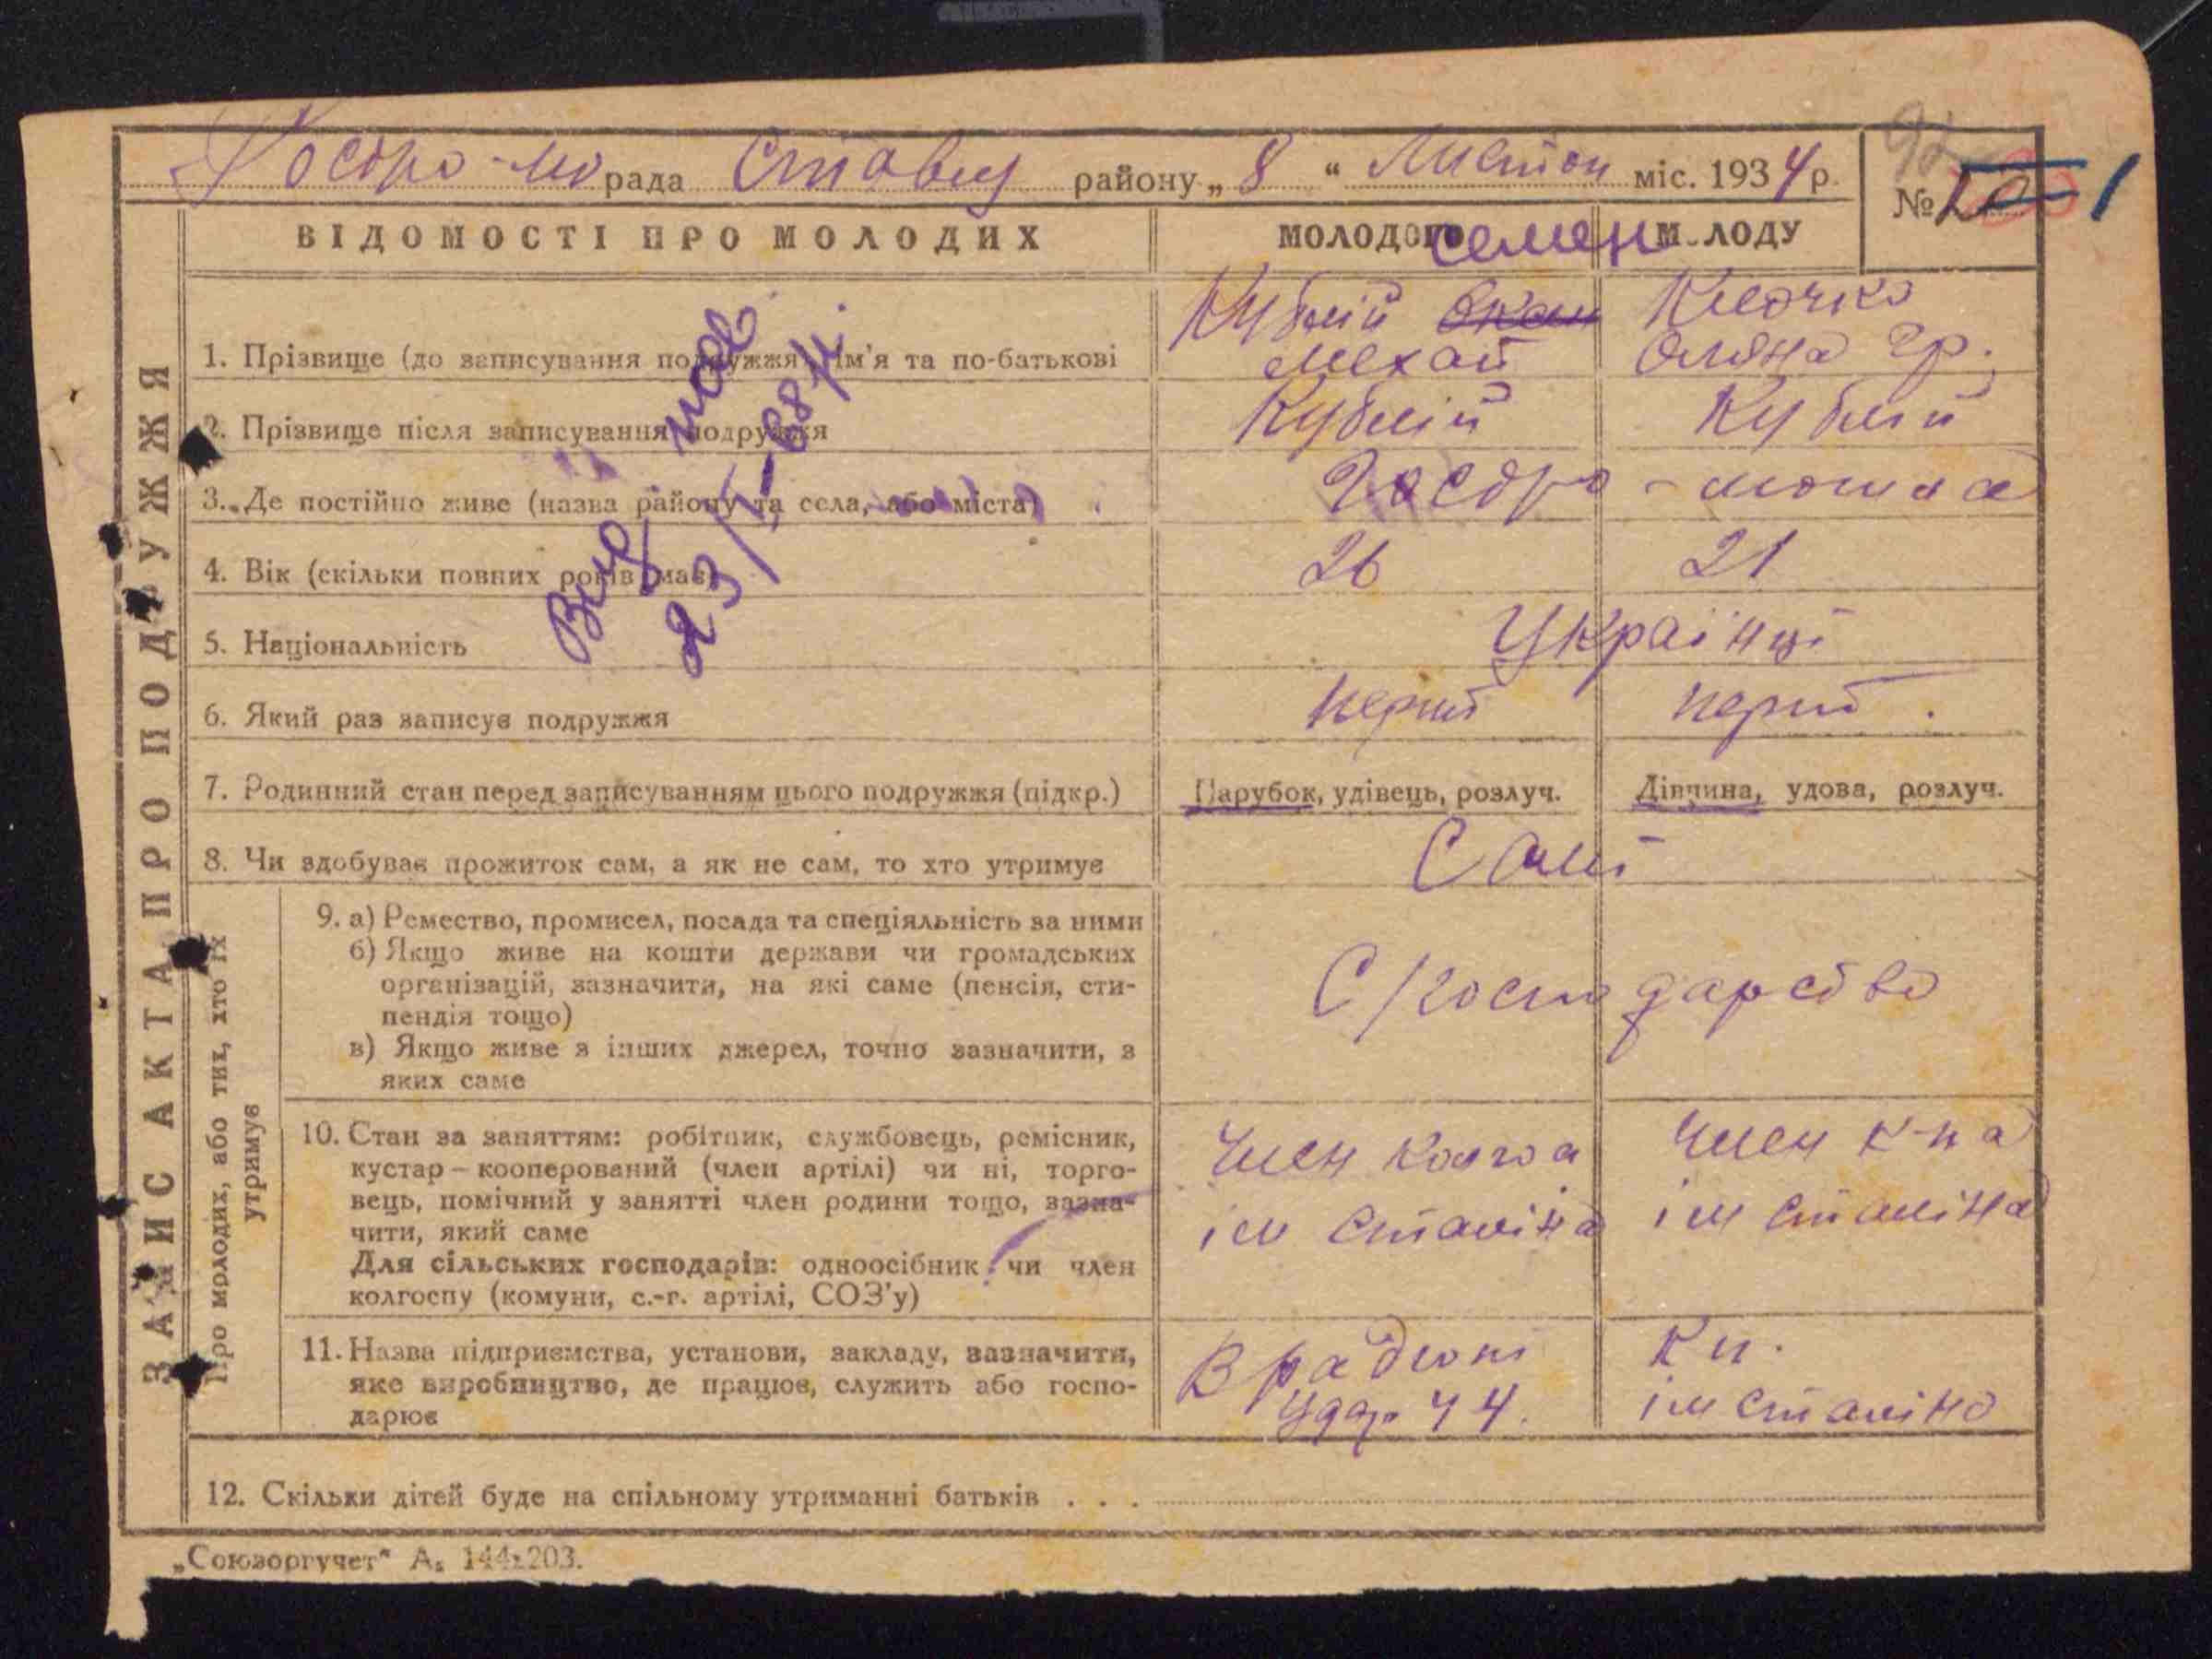 Гостро-мо рада Ставищ району „ 8 “ Листоп міс. 1934 р.
№ 1
ЗАПИС АКТА ПРО ПОДРУЖЖЯ
ВІДОМОСТІ ПРО МОЛОДИХ МОЛОДОГО МОЛОДУ
Семен
1. Прізвище (до записування подружжя) ім’я та по-батькові Кублій Мехай Клочко Оляна Гр.
2. Прізвище після записування подружжя Кублій Кублій
3. Де постійно живе (назва району та села, або міста) Гостро-могила
4. Вік (скільки повних років має) 26 21
5. Національність Українці
6. Який раз записує подружжя перший перший
7. Родинний стан перед записуванням цього подружжя (підкр.) Парубок, удівець, розлуч. Дівчина, удова, розлуч.
8. Чи здобуває прожиток сам, а як не сам, то хто утримує Самі
Про молодих, або тих, хто їх утримує
9. а) Ремество, промисел, посада та спеціяльність за ними
б) Якщо живе на кошти держави чи громадських
організацій, зазначити, на які саме (пенсія, сти-
пендія тощо)
С/господарство
в) Якщо живе з інших джерел, точно зазначити, з
яких саме
10. Стан за заняттям: робітник, службовець, ремісник,
кустар – кооперований (член артілі) чи ні, торго-
вець, помічний у занятті член родини тощо, зазна-
чити, який саме
Для сільських господарів: одноосібник чи член
колгоспу (комуни, с.-г. артілі, СОЗ’у)
Член колгоа ім Сталіна
Член к-па ім Сталіна
11. Назва підприємства, установи, закладу, зазначити,
яке виробництво, де працює, служить або госпо-
дарює
ім Сталіна
12. Скільки дітей буде на спільному утриманні батьків . . .
„Союзоргучет“